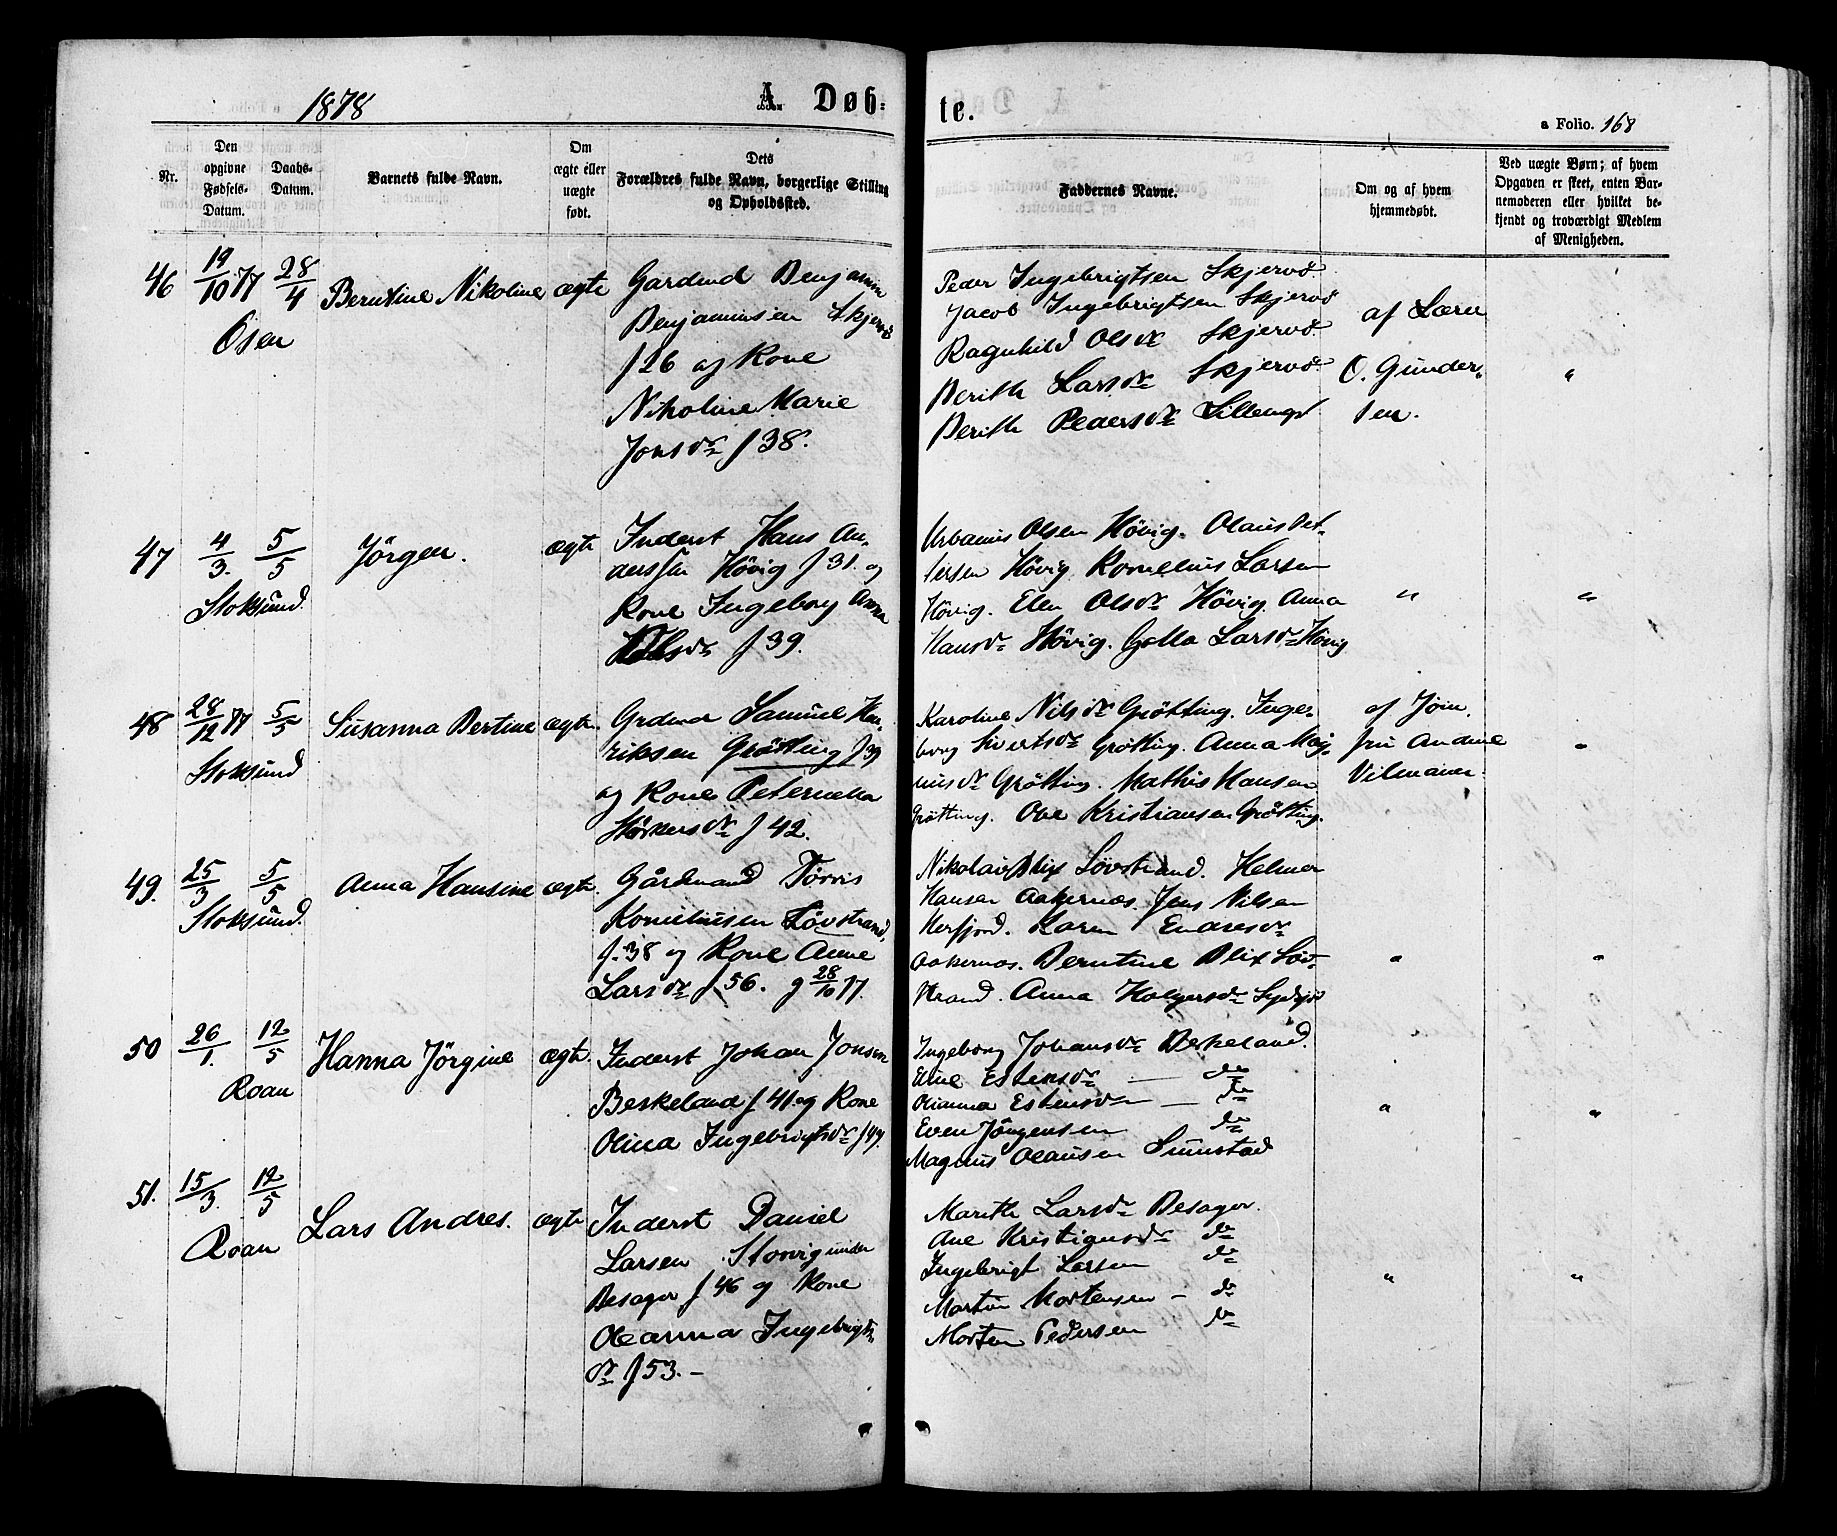 1878
A. Døb-
te.
a Folio. 168
Nr.
Den opgivne Fødsels-Datum.
Daabs-Datum.
Barnets fulde Navn.
Om ægte eller uægte født.
Dets Forældres fulde Navn, borgerlige Stilling og Opholdssted.
Faddernes Navne.
Om og af hvem hjemmedøbt.
Ved uægte Børn; af hvem Opgaven er skeet, enten Barnemoderen eller hvilket bekjendt og troværdigt Medlem af Menigheden.
46 19/10 77 28/4 Berntine Nikoline ægte
Osen
Gardmd Benjamin
Benjaminsen Skjervø
f 26 og Kone
Nikoline Marie
Jonsdr f 38.
Peder Ingebrigtsen Skjervø
Jacob Ingebrigtsen Skjervø
Ragnhild Olsdr Skjervø
Berith Larsdr Skjervø
Berith Pedersdr Sillengt
af Lærer
O. Gunder-
sen.
"
47 4/3. 5/5 Jörgen. ægte
Stoksund.
Inderst Hans An-
derssen Hövig f 31. og
Kone Ingeborg Anna
f 39.
Urbanus Olsen Hövig. Olaus Pet-
tersen Hövig Kornelius Larsen
Hövig. Elen Olsdr Hövig. Anna
Hansdr Hövig. Golla Larsdr Hövig
"
"
48 28/12 77 5/5 Susanna Bertine ægte.
Stoksund
Grdmd Samuel Hen-
riksen Grötting f 39
og Kone Peternella
Störkersdr f 42.
Karoline Nilsdr Grötting. Inge-
borg Sivertsdr Grötting. Anna Mag-
nusdr Grötting. Mathis Hansen
Grötting. Ove Kristiansen Grötting.
af Jom.
fru Andrine
Vilmann.
"
49. 25/3 5/5 Anna Hansine ægte.
Stoksund.
Gårdmand Törris
Korneliusen Lövstrand,
f. 38 og Kone Anne
Larsdr f 56. g 28/10 77.
Nikolai Blix Lövstrand. Helmer
Hansen Aakernæs. Jens Nilsen
Herfjord. Karen Endresdr
Aakernæs. Berntine Blix Löv-
strand. Anna Holgersdr
"
"
50 26/1. 12/5 Hanna Jörgine ægte.
Roan
Inderst Johan Jonsen
Beskeland f 41. og Kone
Olina Ingebrigtsdr f 49.
Ingeborg Johansdr Beskeland.
Eline Estensdr — do
Olianna Estensdr — do
Even Jörgensen do
Magnus Olausen Sumstad
"
"
51. 15/3. 12/5 Lars Andres. ægte
Roan
Inderst Daniel
Larsen Storvig under
Besager f 46 og Kone
Oleanna Ingebrigts-
dr f 53. –
Marith Larsdr Besager.
Ane Kristiansdr do
Ingebrigt Larsen do
Martin Mortensen – do
Morten Pedersen do
"
"